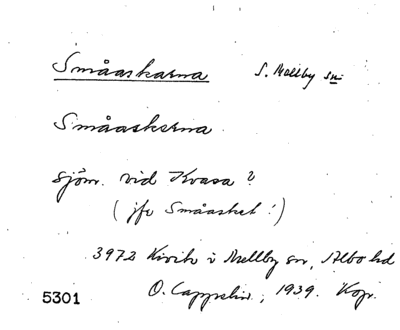 Småaskarna S. Mellby sn
Småaskarna
sjöm. vid Kvasa?
(jfr Småasket!)
3972 Kivik i Mellby sn, Albo hd
5301 O. Cappelin, 1939. Kop.